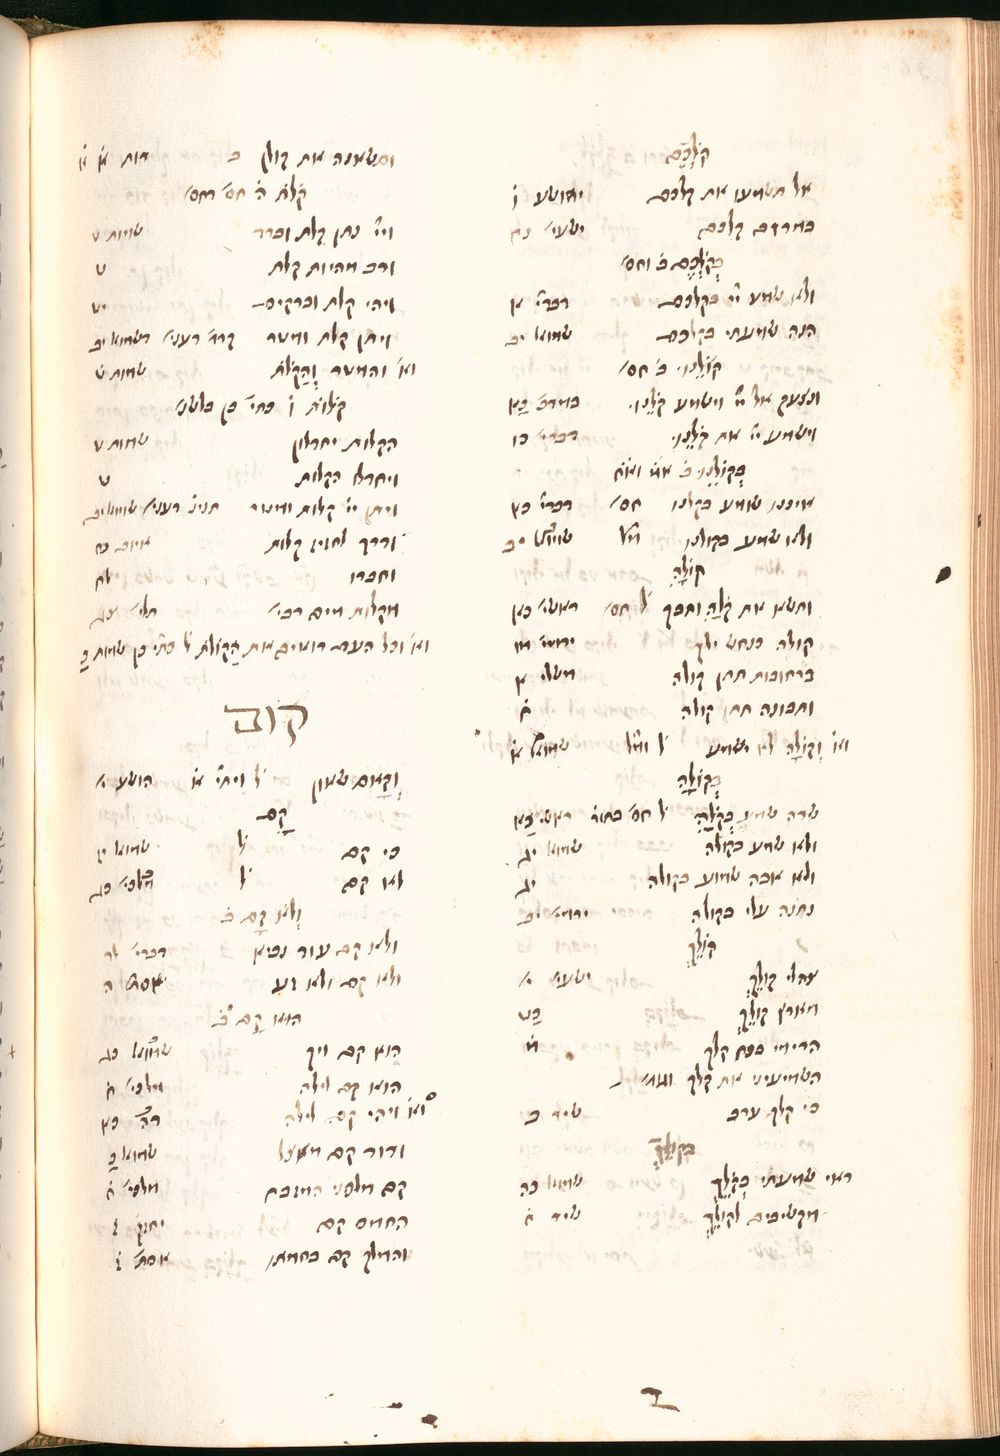 קֹלְכֶם
אל תשמעו את קלכם יהושע ו
במרדם קלכם ישעי׳ נח
בְּקוֹלְכֶם ב׳ וחס׳
ולא שמע יי׳ בקלכם דברי׳ א
הנה שמעתי בקלכם שמואל יב
קוֹלֵנוּ ב׳ חס׳
ונצעק אל יי׳ וישמע קֹלֵנוּ במדב׳ כא
וישמע יי׳ את קֹלֵנוּ דברי׳ כו
בְּקוֹלֵנוּ ב׳
איננו שומע בקלנו חס׳ דברי׳ כא
ולא שמע בקולנו שמואל יב
קוֹלָהּ
ותשא את קֹלָהּ ותבך ל׳ חס׳ ראשי׳ כא
קולה כנחש ילך ירמי׳ מו
ברחובות תתן קולה משלי א
ותבונה תתן קולה ח
וא׳ וְקוֹלָהּ לא ישמע ל׳ ומל׳ שמואל א
בְּקוֹלָהּ
שרה שמע בְּקֹלָהּ ל׳ חס׳ בתור׳ ראשי׳ כא
ולא שמע בקולה שמואל יג
ולא אבה שמוע בקולה יג
נתנה עלי בקולה ירמי׳ יב
קוֹלֵךְ
צהלי קוֹלֵךְ ישעי׳ י
מארץ קוֹלֵךְ כט
הרימי בכח קלך מ
השמיעיני את קלך
כי קלך ערב שיר ב
בְּקוֹלֵךְ
ראי שמעתי בְּקֹלֵךְ שמואל כה
מקשיבים לְקוֹלֵךְ שיר ח
ומשאנה את קולן ב דות א א
קֹלֹת ה׳ חס׳ דחס׳
ויי׳ נתן קֹלת וברד שמות ט
ורב מהיות קלת ט
ויהי קלת וברקים יט
ויתן קלת ומטר קדמ׳ דעני׳ דשמואל יב
וא׳ והמטר וְהַקֹּלֹת שמות ט
קֹלוֹת ו׳ כתי׳ כן בלשנ׳
הקלות יחדלון שמות ט
ויחדלו הקלות ט
ויתן יי׳ קלות ומטר תנינ׳ דעני׳ שמואל יב
ודרך לחזיז קלות איוב כח
וחברו לח
מקלות מים רבי׳ תלי׳ צג
וא׳ וכל העם רואים את הַקּוֹלֹת ל׳ כתי׳ כן שמות כ
קום
וְקָאם שאון ל׳ ויתי׳ א׳ הושע י
קָם
כי קם ל׳ שמואל יז
לא קם ל׳ מלכי׳ כג
וְלֹא קָם ב׳
ולא קם עוד נביא דברי׳ לד
ולא קם ולא זע אסת׳ ה
הוא קָם ב׳
הוא קם ויך שמואל כג
הוא קם לילה מלכי׳ ח
וא׳ ויהי קם לילה דה׳ כא
ודוד קם מאצל שמואל כ
קם מלפני המזבח מלכי׳ ח
החמס קם יחזק׳ ז
והמלך קם בחמתו אסת׳ ז